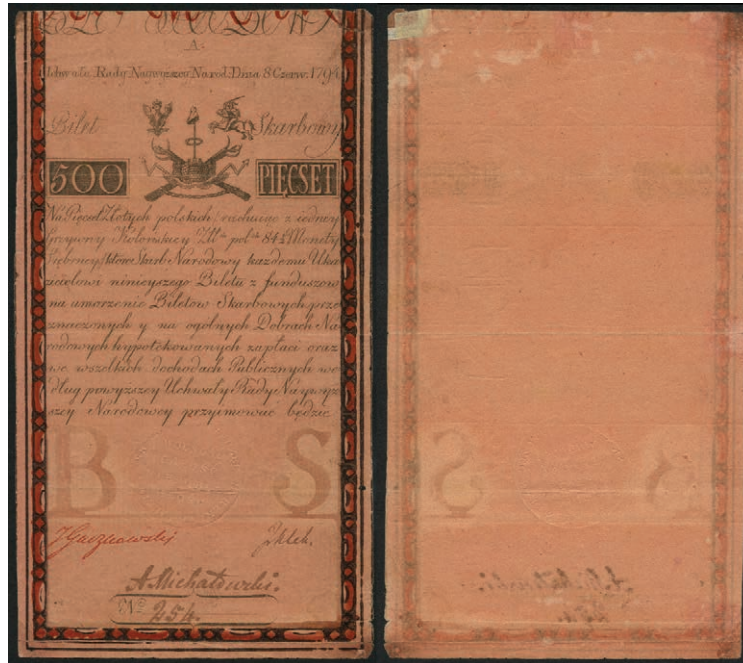 A.
Uchwałą Rady Naywyższey Narod: Dnia 8 Czerw: 1794
Bilet Skarbowy
500 PIĘCSET
Na Pięcset Złotych polskich, rachuiąc z iedney
Grzywny Kolońskiey Złł^ch pol^ch 84½ Monety
Srebrney, które Skarb Narodowy każdemu Uka
zicielowi ninieyszego Biletu z funduszow
na umorzenie Biletow Skarbowych prze
znaczonych y na ogólnych Dobrach Na
rodowych hypotekowanych zapłaci oraz
we wszelkich dochodach Publicznych we
dług powyższey Uchwały Rady Naywyż
szey Narodowey przyimować będzie
B S
A. Michałowski.
N° 254.